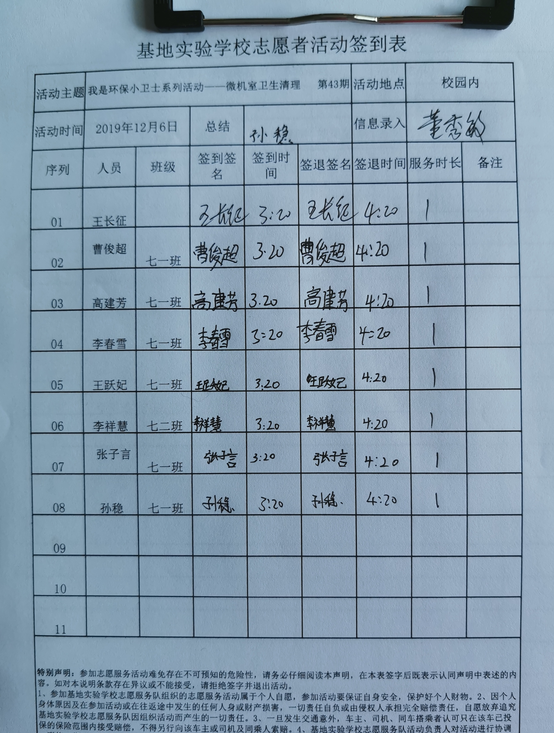 基地实验学校志愿者活动签到表
活动主题 我是环保小卫士系列活动——微机室卫生清理 第43期 活动地点 校园内
活动时间 2019年12月6日 总结 孙稳 信息录入 董秀敏
序列 人员 班级 签到签名 签到时间 签退签名 签退时间 服务时长 备注
01 王长征 王长征 3:20 王长征 4:20 1
02 曹俊超 七一班 曹俊超 3:20 曹俊超 4:20 1
03 高建芳 七一班 高建芳 3:20 高建芳 4:20 1
04 李春雪 七一班 李春雪 3:20 李春雪 4:20 1
05 王跃妃 七一班 王跃妃 3:20 王跃妃 4:20 1
06 李祥慧 七二班 李祥慧 3:20 李祥慧 4:20 1
07 张子言 七一班 张子言 3:20 张子言 4:20 1
08 孙稳 七一班 孙稳 3:20 孙稳 4:20 1
09
10
11
特别声明：参加志愿服务活动难免存在不可预知的危险性，请务必仔细阅读本声明，在本表签字后既表示认同声明中表述的内
容，如对本说明条款存在异议或不能接受，请拒绝签字并退出活动。
1、参加基地实验学校志愿服务队组织的志愿服务活动属于个人自愿，参加活动要保证自身安全，保护好个人财物。2、因个人
身体原因及在参加活动或在往返途中发生的任何人身或财产损害，一切责任自负或由侵权人承担完全赔偿责任，自愿放弃追究
基地实验学校志愿服务队因组织活动而产生的一切责任。3、一旦发生交通意外，车主、司机、同车搭乘者认可只在该车已投
保的保险范围内接受赔偿，不得另行向该车主或司机及同乘人索赔。4、基地实验学校志愿服务队活动负责人对活动进行协调